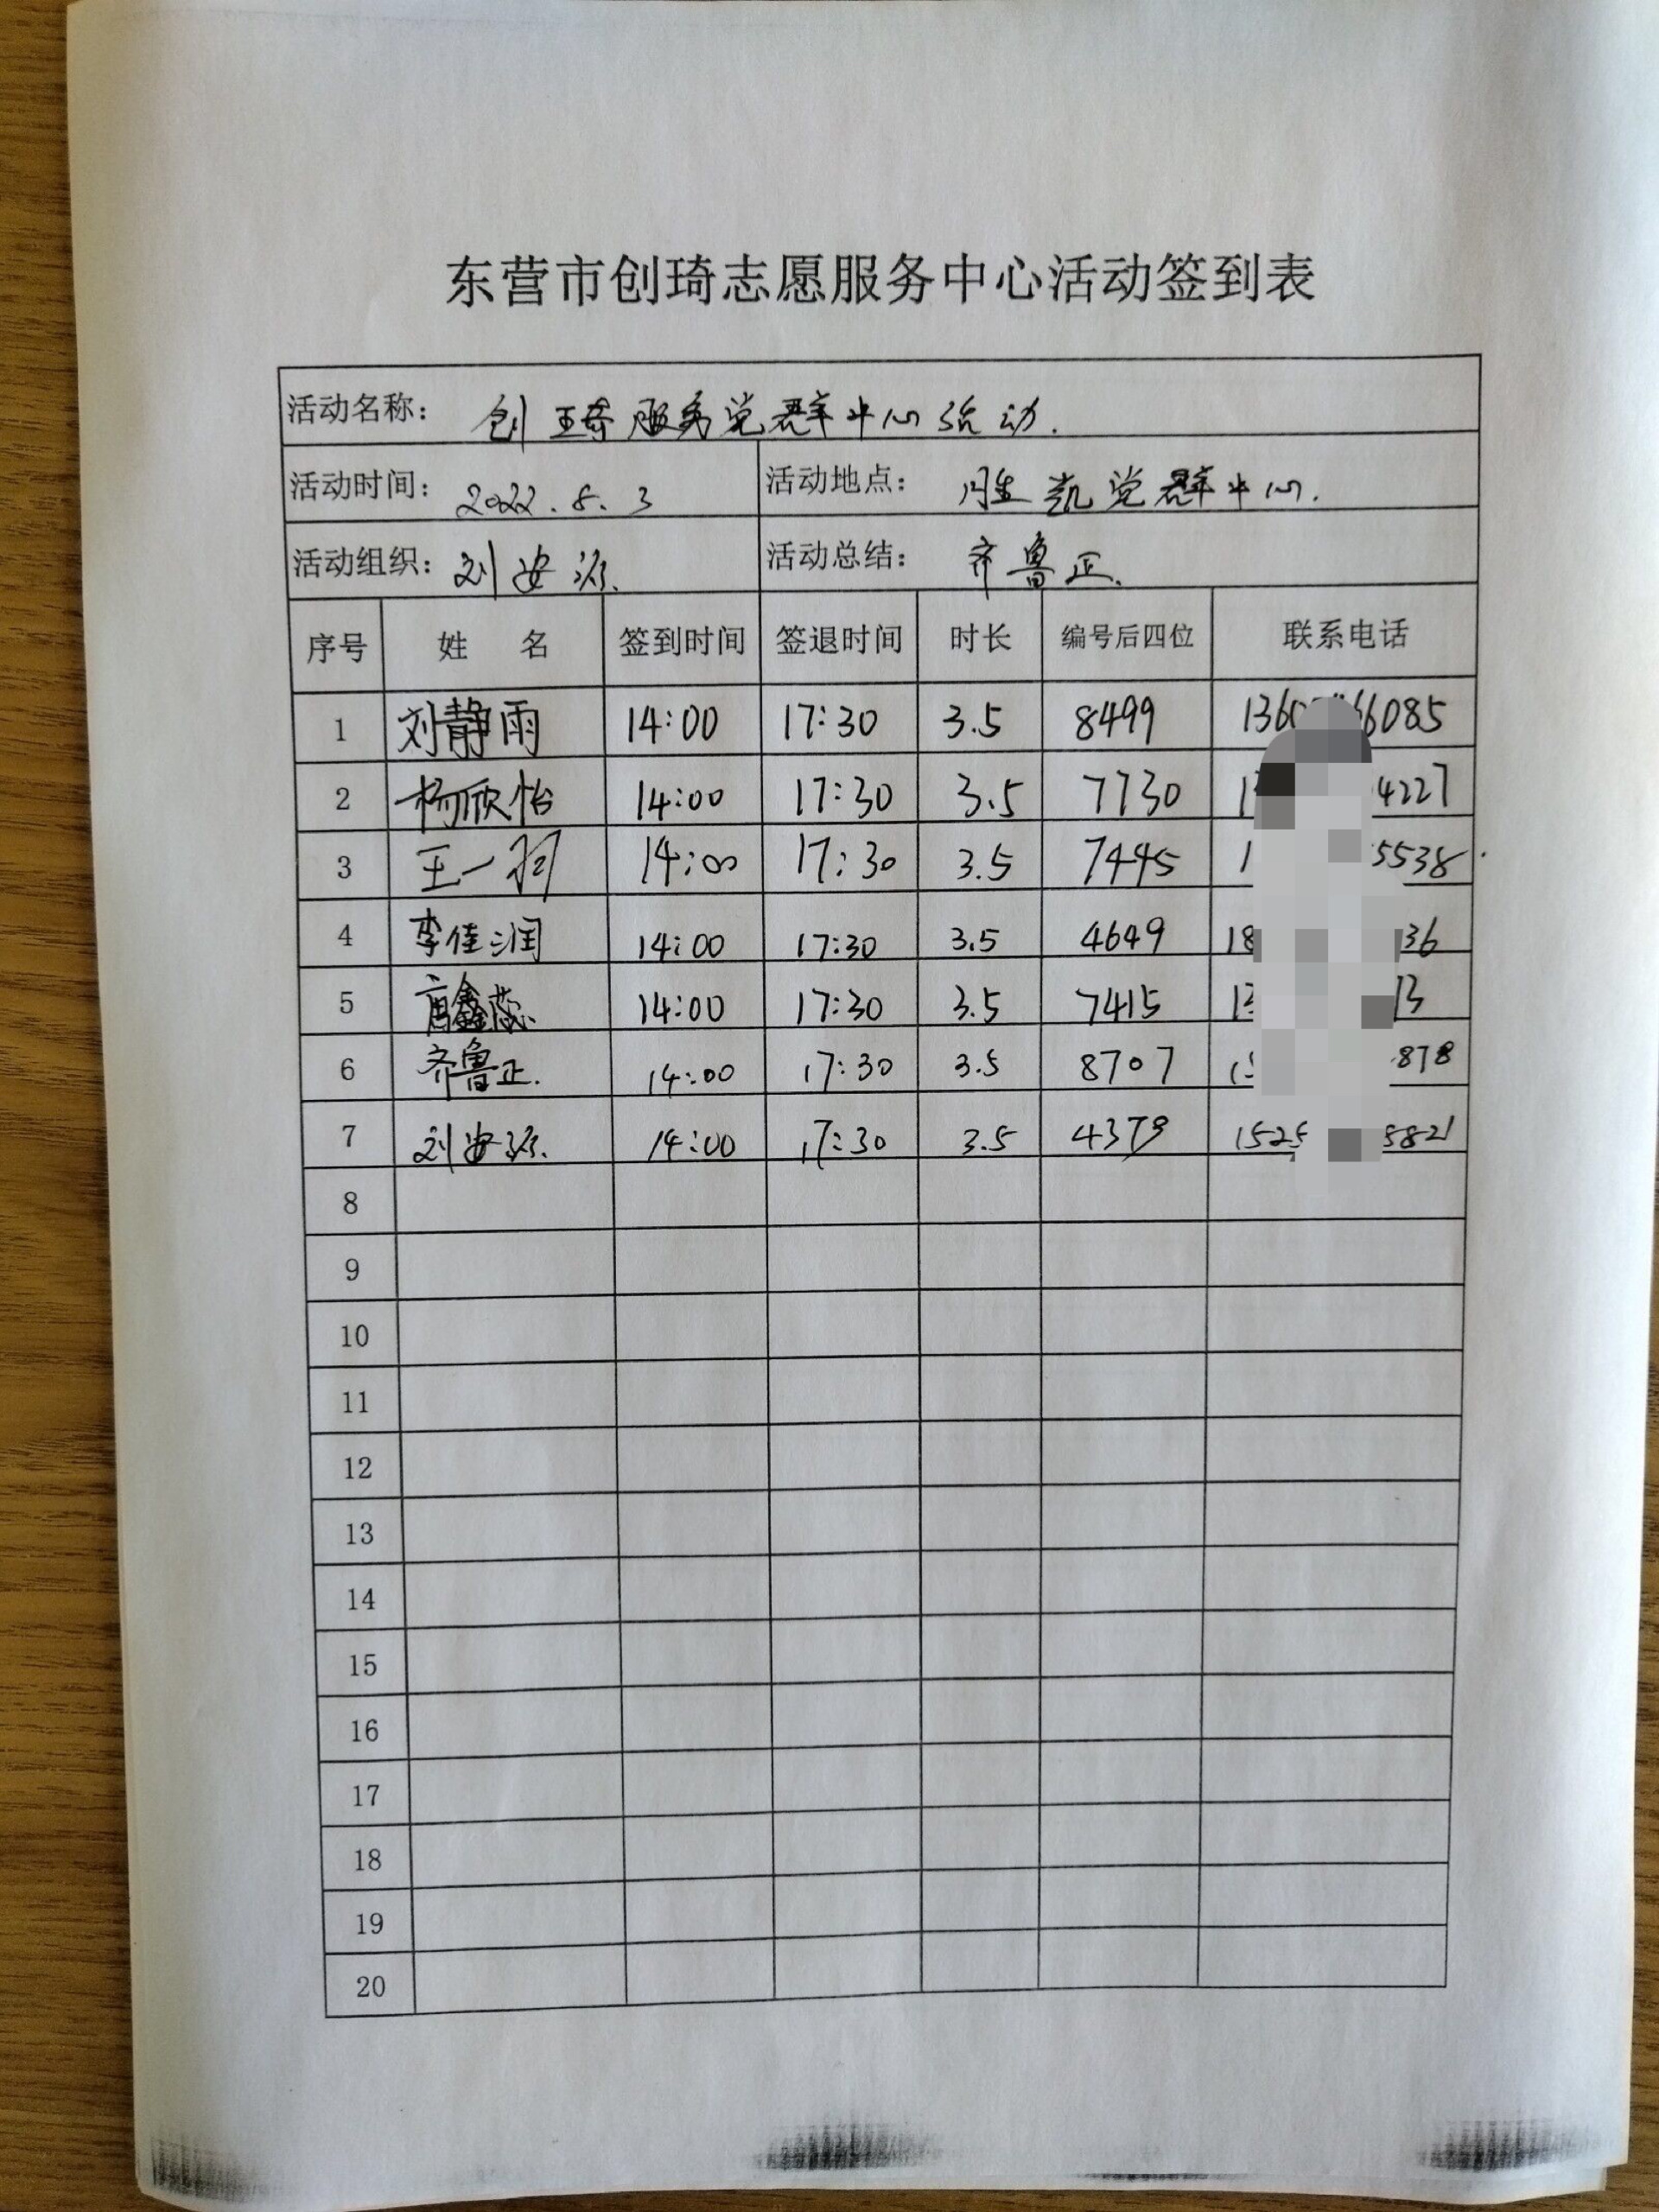 东营市创琦志愿服务中心活动签到表
活动名称： 创琦服务党群中心活动.
活动时间： 2022.8.3 活动地点： 胜凯党群中心.
活动组织： 刘安源. 活动总结： 齐鲁正.
序号 姓 名 签到时间 签退时间 时长 编号后四位 联系电话
1 刘静雨 14:00 17:30 3.5 8499 136 66085
2 杨欣怡 14:00 17:30 3.5 7730 1 4227
3 王一 14:00 17:30 3.5 7445 1 5538
4 李佳润 14:00 17:30 3.5 4649 18 36
5 鑫蕊 14:00 17:30 3.5 7415 13 13
6 齐鲁正. 14:00 17:30 3.5 8707 15 878
7 刘安源. 14:00 17:30 3.5 4379 1525 5821
8
9
10
11
12
13
14
15
16
17
18
19
20